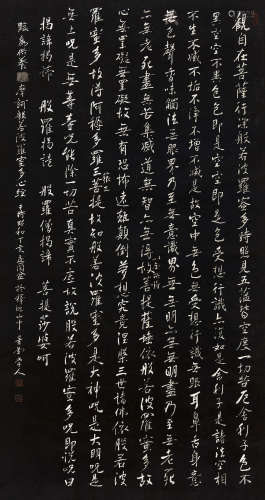 觀自在菩薩行深般若波羅蜜多時照見五蘊皆空度一切苦厄舍利子色不
異空空不異色色即是空空即是色受想行識亦復如是舍利子是諸法空相
不生不滅不垢不淨不增不減是故空中無色無受想行識無眼耳鼻舌身意
無色聲香味觸法無眼界乃至無意識界無無明亦無無明盡乃至無老死
亦無老死盡無苦集滅道無智亦無得以無所得故菩提薩埵依般若波羅蜜多故
心無罣礙無罣礙故無有恐怖遠離顛倒夢想究竟涅槃三世諸佛依般若波
羅蜜多故得阿耨多羅三藐三菩提故知般若波羅蜜多是大神呪是大明呪是
無上呪是無等等呪能除一切苦真實不虛故說般若波羅蜜多呪即說呪曰
揭諦揭諦 般羅揭諦 般羅僧揭諦 菩提莎婆呵
摩訶般若波羅蜜多心經